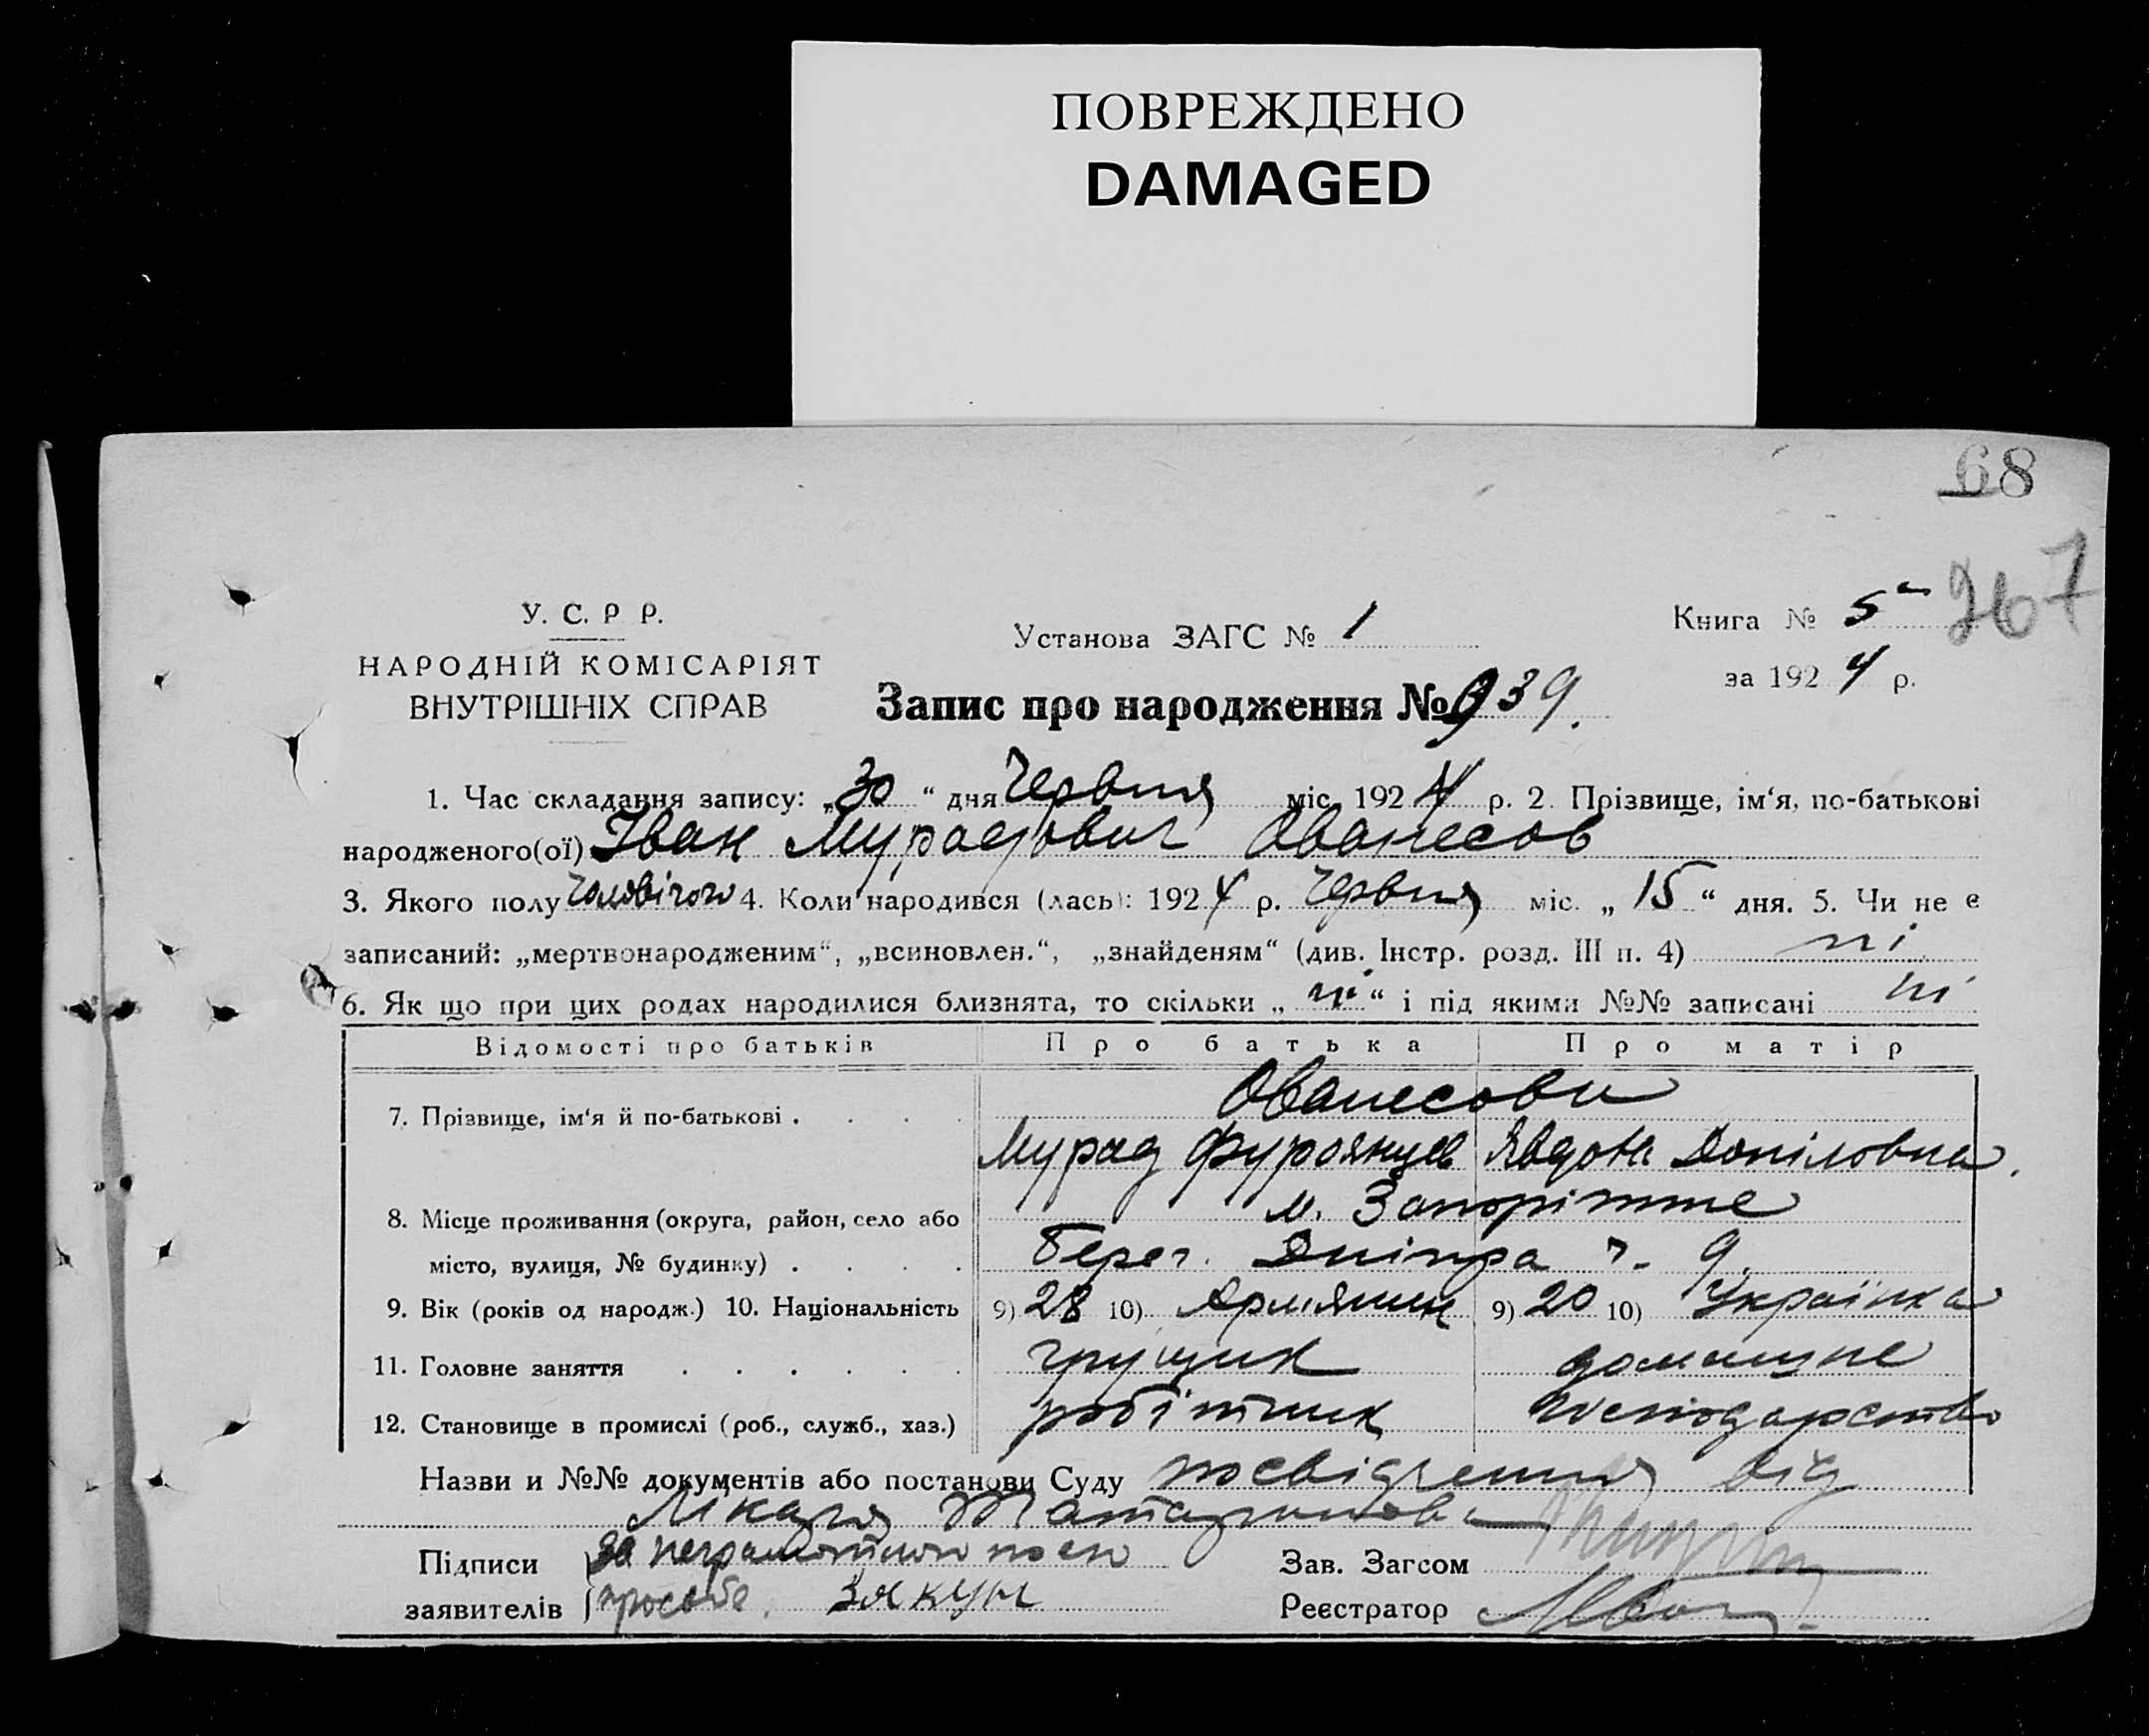 ПОВРЕЖДЕНО
DAMAGED
68
267
У. С. Р Р.
НАРОДНІЙ КОМІСАРІЯТ
ВНУТРІШНІХ СПРАВ
Установа ЗАГС № 1
Книга № 5
за 1924 р.
Запис про народження № 939.
1. Час складання запису: „30“ дня Червня міс. 1924 р. 2. Прізвище, ім‘я, по-батькові
народженого(ої) Іван Мурадович Ованесов
3. Якого полу чоловічого 4. Коли народився (лась): 1924 р. Червня міс. „15“ дня. 5. Чи не є
записаний: „мертвонародженим“, „всиновлен.“, „знайденям“ (див. Інстр. розд. III п. 4) ні
6. Як що при цих родах народилися близнята, то скільки „ні“ і під якими №№ записані ні
Відомості про батьків Про батька Про матір
7. Прізвище, ім‘я й по-батькові . . . . Ованесови
Мурад Явдоха Даніловна.
8. Місце проживання (округа, район, село або м. Запоріжже
місто, вулиця, № будинку) . . . . Берег. Дніпра ч. 9.
9. Вік (років од народж.) 10. Національність 9) 28 10) Армянин 9) 20 10) Українка
11. Головне заняття . . . . . . грущик домашне
12. Становище в промислі (роб., служб., хаз.) робітник господарство
Назви и №№ документів або постанови Суду посвідчення від
лікаря
Підписи за неграмотною по ею Зав. Загсом
заявителів просьбе. Зякун Реєстратор